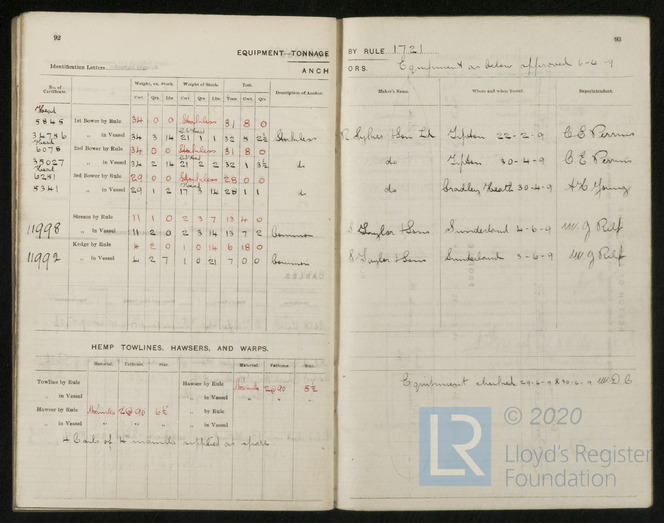 92
EQUIPMENT TONNAGE
Identification Letters
ANCH
No. of Certificate. Weight, ex. Stock. Weight of Stock. Test. Description of Anchor.
Cwt. Qrs. Lbs. Cwt. Qrs. Lbs. Tons. Cwt. Qrs.
Head
5845 1st Bower by Rule 34 0 0 Stockless 31 8 0
34786 „ in Vessel 34 3 14 21 1 1 32 5 2½ Stockless
Head
6078 2nd Bower by Rule 34 0 0 Stockless 31 8 0
35027 „ in Vessel 34 2 14 21 2 2 32 1 3½ do
Head
6281 3rd Bower by Rule 29 0 0 Stockless 28 0 0
5341 „ in Vessel 29 1 2 17 3 14 28 1 1 do
Stream by Rule 11 1 0 2 3 7 13 4 0
11998 „ in Vessel 11 2 0 2 3 14 13 7 2 Common
Kedge by Rule 4 2 0 1 0 14 6 18 0
11992 „ in Vessel 4 2 7 1 0 21 7 0 0 Common
HEMP TOWLINES, HAWSERS, AND WARPS.
Material. Fathoms. Size. Material. Fathoms. Size.
Towline by Rule Hawser by Rule Manila 2@90 5½
„ in Vessel „ in Vessel „ „ „
Hawser by Rule Manila 2@90 6½ „ by Rule
„ in Vessel „ „ „ „ in Vessel
4 Coils of 4 manilla supplied as spare
93
BY RULE 1721
ORS. Equipment as below approved 6-4-9
Maker's Name. Where and when Tested. Superintendent.
R Sykes & Son Ld Tipton 22-2-9 C E Perrins
do Tipton 30-4-9 C E Perrins
do Cradley Heath 30-4-9 Young
S Taylor & Sons Sunderland 4-6-9 W. J Relf
S Taylor & Sons Sunderland 3-6-9 W. J Relf
Equipment checked 29-6-9 & 30-6-9 W.D.C
LR
© 2020
Lloyd's Register
Foundation